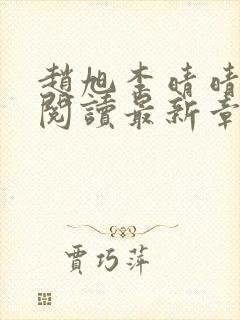 趙旭李晴晴
閱讀最新章
賈巧萍